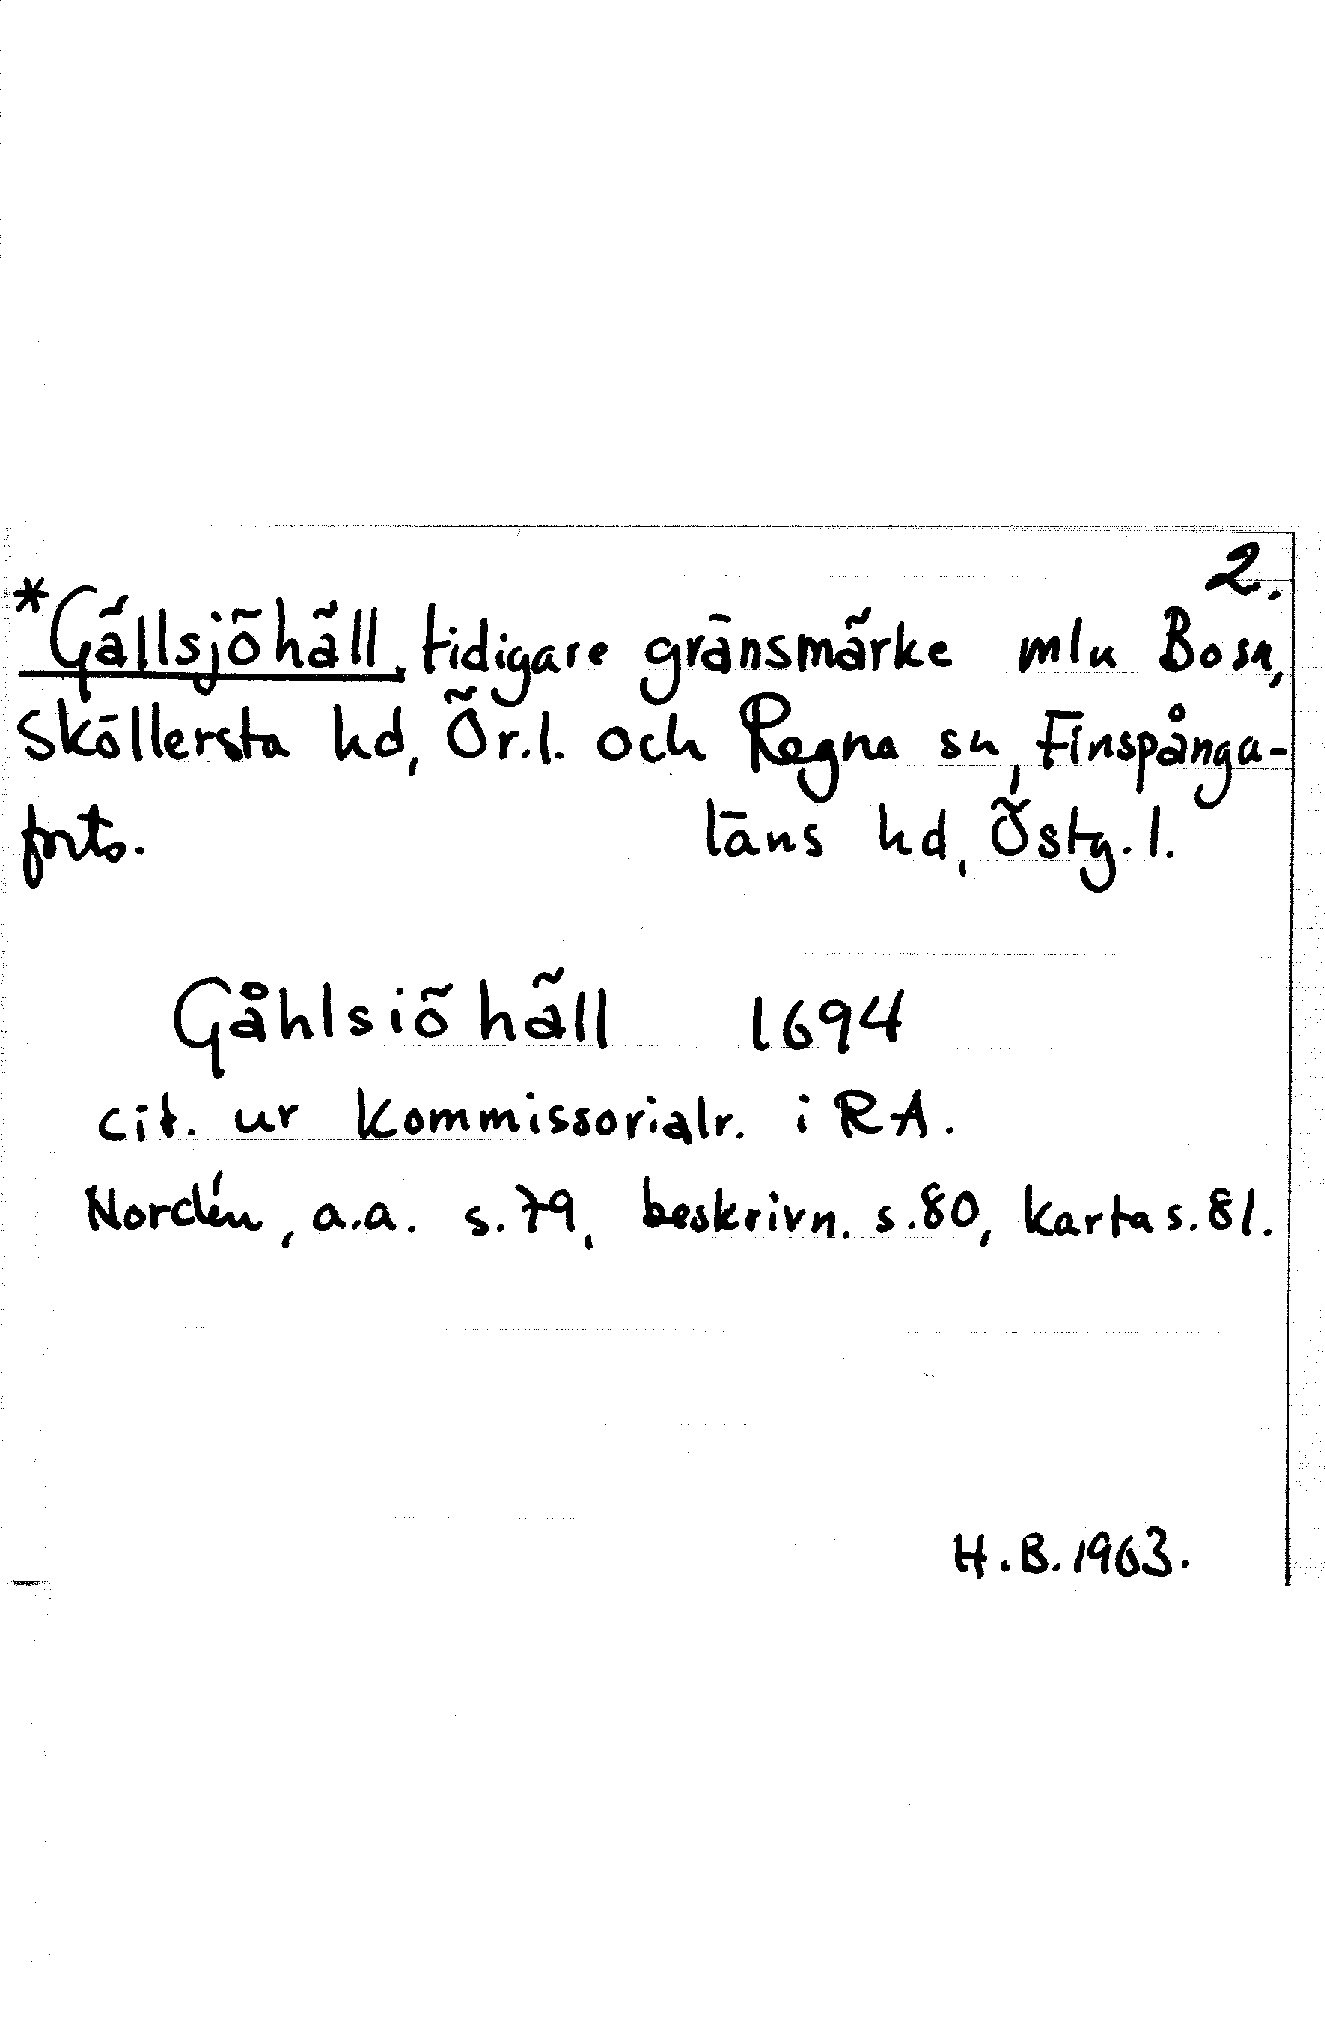 2.
*Gällsjöhäll, tidigare gränsmärke mln Bo sn,
Sköllersta hd, Ör.l. och Regna sn, Finspånga-
forts. läns hd, Östg.l.
Gåhlsiö häll 1694
cit. ur Kommissorialr. i RA.
Nordén, a.a. s.79, beskrivn. s.80, karta s.81.
H.B. 1963.